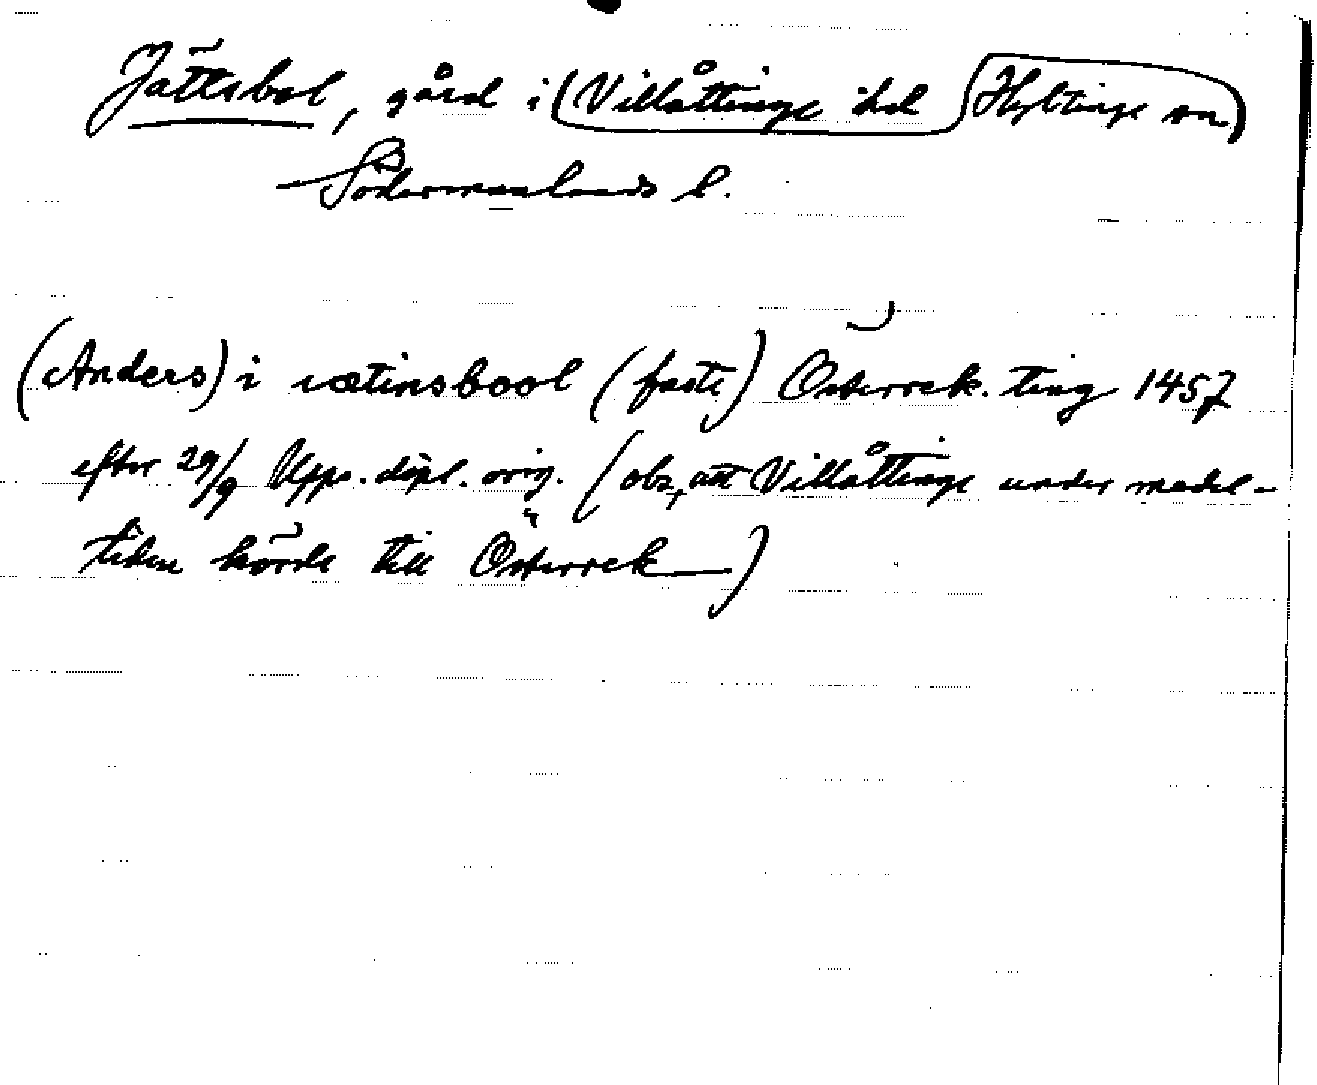 Jättsbol, gård i (Villåttinge hd Hyltinge sn)
Södermanlands l.
(Anders) i iætinsbool (faste) Österrek. ting 1457
efter 29/9 Upps. dipl. orig. (obs, att Villåttinge under medel-
tiden hörde till Österrek)